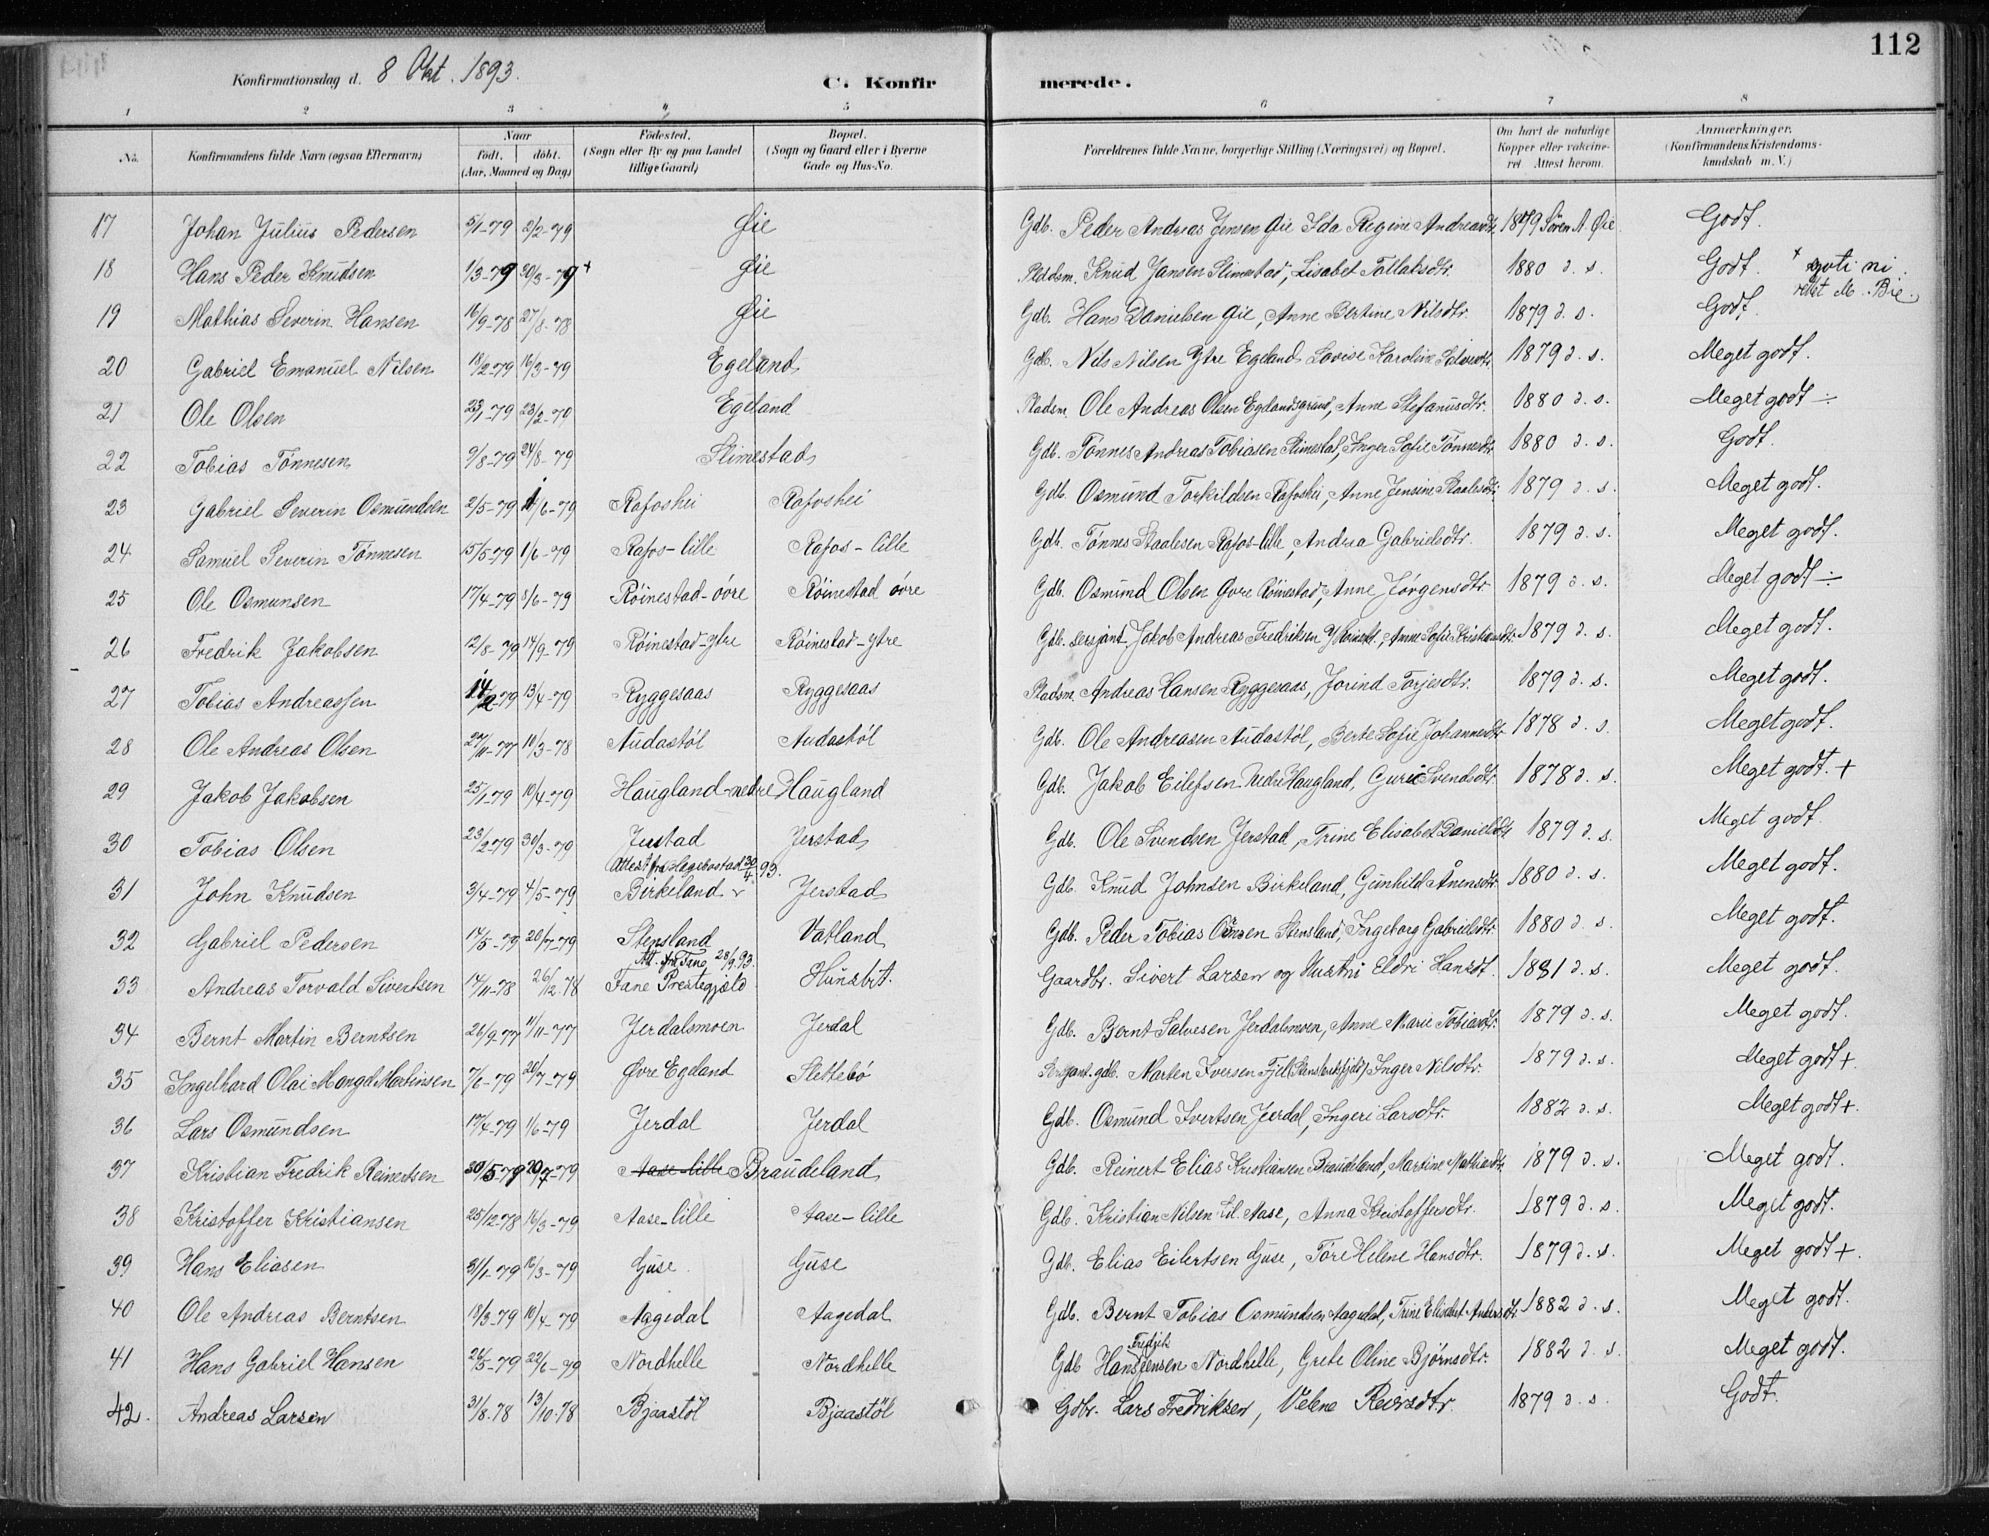 112
Konfirmationsdag d. 8 Okt. 1893.
C. Konfirmerede.
1 2 3 4 5 6 7 8
No. Konfirmandens fulde Navn (ogsaa Efternavn) Naar født. døbt. (Aar, Maaned og Dag) Fødested. (Sogn eller By og paa Landet tillige Gaard) Bopæl. (Sogn og Gaard eller i Byerne Gade og Hus-No. Forældrenes fulde Navne, borgerlige Stilling (Næringsvei) og Bopæl. Om havt de naturlige Kopper eller vakcineret Attest herom. Anmærkninger. (Konfirmandens Kristendomskundskab m.V.)
17 Johan Julius Pedersen 5/1-79 2/2-79 Øie Gdb. Peder Andreas Jensen Øie Ida Regine Andreasdtr. 1879 Søren A. Øie Godt.
18 Hans Peder Knudsen 1/3-79 30/3-79+ Øie Knud Jansen Slimestad, Lisabet Tallaksdtr. 1880 d. s. Godt.
19 Mathias Severin Hansen 16/9-78 27/8-78 Øie Gdb. Hans Danielsen Øie, Anne Bertine Nilsdtr. 1879 d. s. Godt.
20 Gabriel Emanuel Nilsen 18/2-79 16/3-79 Egeland Gdb. Nils Nilsen Ytre Egeland, Lovise Karoline 1879 d. s. Meget godt.
21 Ole Olsen 23/1-79 23/2-79 Egeland Pladsm. Ole Andreas Olsen Egelandsgrund, Anne Stefanusdtr. 1880 d. s. Meget godt ÷
22 Tobias Tønnesen 9/8-79 24/8-79 Slimestad Gdb. Tønnes Andreas Tobiasen Slimestad, Inger Sofie Tønnesdtr. 1880 d. s. Godt.
23 Gabriel Severin Osmundsen 2/5-79 1/6-79 Rafoshei Rafoshei Gdb. Osmund Torkildsen Rafoshei, Anne Jensine Staalesdtr. 1879 d. s. Meget godt.
24 Samuel Severin Tønnesen 15/5-79 1/6-79 Rafos-lille Rafos-lille Gdb. Tønnes Staalesen Rafos-lille, Andrea Gabrielsdtr. 1879 d. s. Meget godt.
25 Ole Osmunsen 17/4-79 8/6-79 Røinestad-øvre Røinestad øvre Gdb. Osmund Olsen Øvre Røinestad, Anne Jørgensdtr. 1879 d. s. Meget godt ÷
26 Fredrik Jakobsen 12/8-79 14/9-79 Røinestad-ytre Røinestad-ytre Gdb. sersjant Jakob Andreas Fredriksen Y. Røinest., Anne Sofie Kristiansdtr. 1879 d. s. Meget godt.
27 Tobias Andreassen 14/2-79 13/4-79 Ryggesaas Ryggesaas Pladsm. Andreas Hansen Ryggesaas, Jorind Torjesdtr. 1879 d. s. Meget godt.
28 Ole Andreas Olsen 27/11-77 10/3-78 Audastøl Audastøl Gdb. Ole Andreasen Audastøl, Berte Sofie Johannesdtr. 1878 d. s. Meget godt.
29 Jakob Jakobsen 25/1-79 10/4-79 Haugland-nedre Haugland Gdb. Jakob Eilefsen Nedre Haugland, Guri Svendsdtr. 1878 d. s. Meget godt. +
30 Tobias Olsen 23/2-79 30/3-79 Jerstad Jerstad Gdb. Ole Svendsen Jerstad, Trine Elisabet Danielsdtr. 1879 d. s. Meget godt.
Attest fra Hægebostad 30/4 93.
31 John Knudsen 3/4-79 4/5-79 Birkeland Jerstad Gdb. Knud Johnsen Birkeland, Gunhild Ånensdtr. 1880 d. s. Meget godt.
32 Gabriel Pedersen 14/5-79 20/7-79 Stensland Vatland Gdb. Peder Tobias Stensland, Ingeborg Gabrielsdtr. 1880 d. s. Meget godt.
Att. fra Fane 28/9.93.
33 Andreas Torvald Sivertsen 17/11-78 26/12-78 Fane Prestegjeld Gaardbr. Sivert Larsen og Hustru Eldri Hansdt. 1881 d. s. Meget godt.
34 Bernt Martin Berntsen 26/9-77 11/11-77 Jerdalsmoen Jerdal Gdb. Bernt Salvesen Jerdalsmoen, Anne Marie Tobiasdtr. 1879 d. s. Meget godt.
35 Ingelhard Olai Mangel Martinsen 7/6-79 20/7-79 Øvre Egeland Slettebø Sersjant-gdb. Marten Iversen Inger Nilsdtr. 1879 d. s. Meget godt +
36 Lars Osmundsen 17/4-79 1/6-79 Jerdal Jerdal Gdb. Osmund Ivertsen Jerdal, Ingeri Larsdtr. 1882 d. s. Meget godt +.
37 Kristian Fredrik Reinertsen 30/5-79 20/7-79 Aase-lille Braudeland Gdb. Reinert Elias Kristiansen Braudeland, Martine Mathiasdtr. 1879 d. s. Meget godt.
38 Kristoffer Kristiansen 25/12-78 16/3-79 Aase-lille Aase-lille Gdb. Kristian Nilsen Lil. Aase, Anna Kristoffersdtr. 1879 d. s. Meget godt.
39 Hans Eliasen 31/1-79 16/3-79 Guse Guse Gdb. Elias Eilertsen Guse, Tore Helene Hansdtr. 1879 d. s. Meget godt +.
40 Ole Andreas Berntsen 18/3-79 10/4-79 Aagedal Aagedal Gdb. Bernt Tobias Osmundsen Aagedal, Trine Elisabet Andersdtr. 1882 d. s. Meget godt.
41 Hans Gabriel Hansen 26/5-79 22/6-79 Nordhelle Nordhelle Gdb Hans Fredrik Jensen Nordhelle, Grete Oline Bjørnsdtr. 1882 d. s. Meget godt.
42. Andreas Larsen 31/8-78 13/10-78 Bjaastøl Bjaastøl Gdbr. Lars Fredriksen, Velene Reiersdtr. 1879 d. s. Godt.